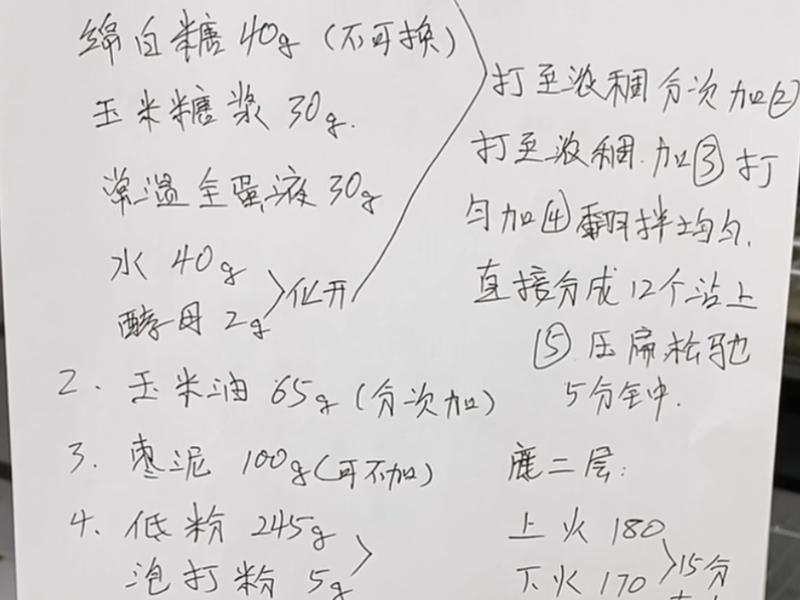 绵白糖 40g (不可换)
玉米糖浆 30g.
常温全蛋液 30g
水 40g
酵母 2g
化开
2. 玉米油 65g (分次加)
3. 枣泥 100g (可不加)
4. 低粉 245g
泡打粉 5g
打至浓稠分次加②
打至浓稠.加③打
匀加④翻拌均匀.
直接分成12个沾上
⑤压扁松驰
5分钟.
底二层:
上火 180
下火 170
15分